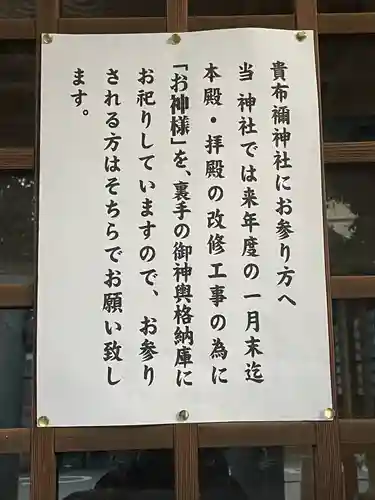 貴布禰神社にお参り方へ
当 神社では来年度の一月末迄
本殿・拝殿の改修工事の為に
「お神様」を、裏手の御神輿格納庫に
お祀りしていますので、お参り
される方はそちらでお願い致し
ます。